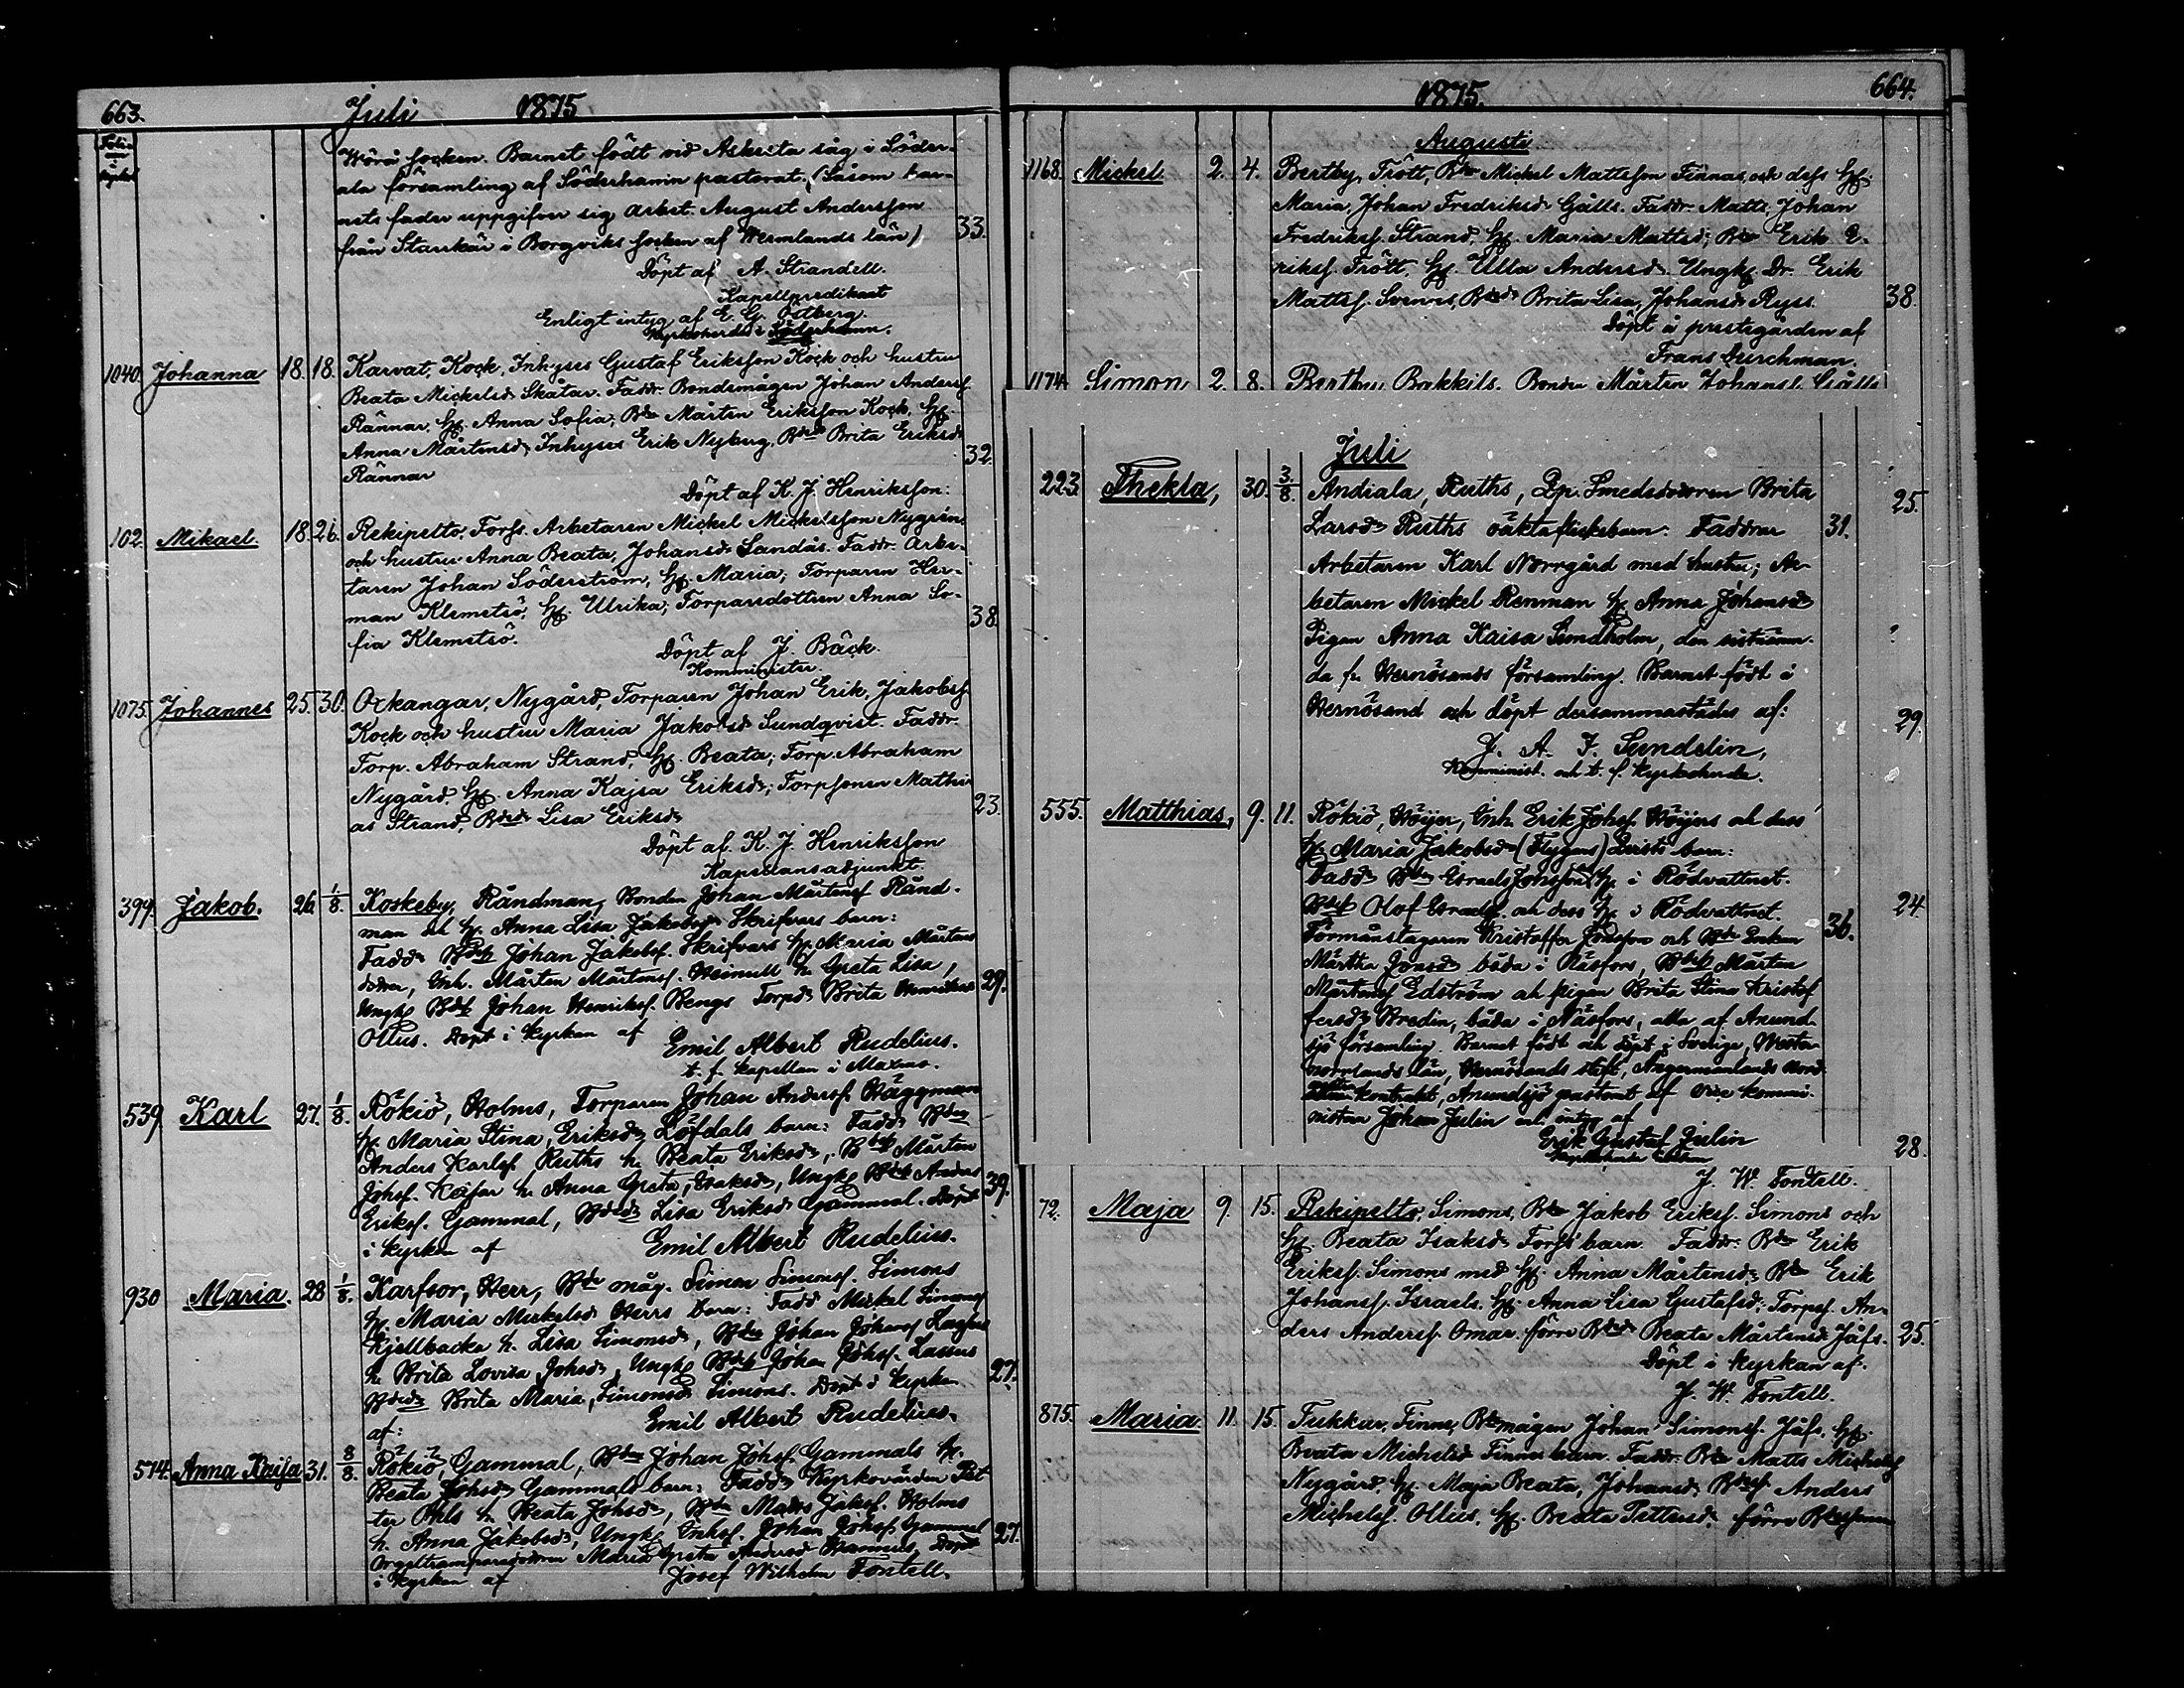 663. Juli 1875
Wörå socken. Barnet födt vid Askesta såg i Söder-
ala församling af Söderhamn pastorat. (Såsom bar-
nets fader uppgifver sig arbet. August Andersson
från Starrkär i Borgviks socken af Wermlands län) 33.
Döpt af A. Strandell.
Kapellpredikant
Enligt intyg af E. G. Östberg.
Kyrkoherde i Söderhamn.
1040. Johanna 18. 18. Karvat, Kock, Inhyses Gustaf Eriksson Kock och hustru
Beata Mickelsdr Skåtar. Faddr. Bondemågen Johan Anderss.
Rännar, Hu. Anna Sofia; Bdn Mårten Eriksson Kock, Hu.
Anna Mårtensdr, Inhyses Erik Nyberg, Bdr Brita Eriksdr 32.
Rännar
Döpt af K. J. Henriksson.
102. Mikael. 18. 26. Rekipelto, Forss. Arbetaren Mickel Mickelsson Nygrén
och hustru Anna Beata, Johansdr Sandås. Faddr. Arbe-
taren Johan Söderström, Hu. Maria; Torparen Her-
man Klemetsö, Hu. Ulrika; Torparedottren Anna So- 38.
fia Klemetsö.
Döpt af J. Bäck.
Komminister.
1075. Johannes 25. 30. Oxkangar, Nygård, Torparen Johan Erik, Jakobss.
Kock och hustru Maria Jakobsdr Sundqvist. Faddr.
Torp. Abraham Strand, Hu. Beata; Torp. Abraham
Nygård, Hu. Anna Kajsa Eriksdr; Torpsonen Mathi-
as Strand, Bdr Lisa Eriksdr 23.
Döpt af K. J. Henriksson
Kapellansadjunkt.
399. Jakob. 26. 1/8. Koskeby, Råndman, Bonden Johan Mårtenss. Rånd-
man och H. Anna Lisa Jakobsdr Skrifvars barn:
Faddr Johan Jakobss. Skrifvars H. Maria Mårtens
dotter, Inh. Mårten Mårtenss. h. Greta Lisa,
Ungk. Johan Henrikss. Bengs Torpdr Brita Henriksdr 29.
Ollus. Döpt i kyrkan af
Emil Albert Rudelius.
t. f. kapellan i Maxmo.
539. Karl 27. 1/8. Rökiö, Holms, Torparen Johan Anderss. Häggman
H. Maria Stina, Eriksdr Löfdals barn: Faddr Bdn
Anders Karlss. Ruths h. Beata Eriksdr, Mårten
Johss. h. Anna Greta, Isaksdr, Ungk. Anders 39.
Erikss. Gammal, Lisa Eriksdr Gammal. Döpt
i kyrkan af Emil Albert Rudelius.
930 Maria. 28 1/8. Karfsor, Herr, Bde måg. Simon Simonss. Simons
H. Maria Mickelsdr Herrs barn: Fadd Mickel Simonss
Kjellbacka h. Lisa Simonsdr, Bdn Johan Johanss
h. Brita Lovisa Johsdr, Ungk. Johan Johss. Lassus 27.
Brita Maria, Simonsdr Simons. Döpt i kyrkan
af: Emil Albert Rudelius.
574. Anna Kaisa 31. 8/8. Rökiö, Gammal, Bdn Johan Johss. Gammals H.
Beata Johsdr Gammals barn: Fadd Kyrkovärden Pet-
ter h. Beata Johsdr, Bdn Matts Jakss. Holms
h. Anna Jakobsdr, Ungk. Inhss. Johan Johss. Gammal 27.
Orgeltramparedottren Maria Greta Andersdr Hannus. Döpt
i kyrkan af Josef Wilhelm Fontell.
1875. 664.
Augusti
1168. Mickel 2. 4. Bertby, Trött, Bdn Mickel Mattsson Finnas, och dess Hu.
Maria, Johan Fredriksdr Gålls. Faddr. Matts Johan
Fredrikss. Strand, Hu. Maria Mattsd; Bdn Erik E-
rikss. Trött, Hu. Ulla Andersdr. Ungk. Dr. Erik
Mattss. Svevis, Bdr Brita Lisa, Johansdr Ryss. 38.
Döpt å prestegården af
Frans Durchman.
1174 Simon 2. 8. Bertby, Bakkils. Bonden Mårten Johanss. Gålls
Juli
223. Thekla, 30. 3/8. Andiala, Ruths, Dp. Smedsdottren Brita 25.
Larsdr Ruths oäkta flickebarn. Faddrar 31.
Arbetaren Karl Norrgård med hustru; Ar-
betaren Mickel Renman h. Anna Johansdr
Pigan Anna Kaisa Sundholm, den sistnämn-
da fr. Hernösands församling. Barnet födt i
Hernösand och döpt dersammastädes af: 29.
J. A. F. Sundelin,
Komminist. och t. f. kyrkoherde.
555. Matthias, 9. 11. Rökiö, Höijer, Inh. Erik Johss. Höijers och dess
H. Maria Jakobsdr (Flygars) barn:
Fadd. Bdn Israels Jonsson, H. i Rödvattnet.
Olof Israelss. och dess H. i Rödvattnet. 24
Förmånstagaren Kristoffer Jonsson och Bde Enkan 36.
Märtha Jonsdr båda i Näsfors, Mårten
Mårtenss Edström och pigan Brita Stina Kristof
fersdr Bredin, båda i Näsfors, alla af Anund-
sjö församling. Barnet födt och döpt i Sverige, Wester-
norrlands län, Hernösands stift, Ångermanlands Nord-
kontrakt, Anundsjö pastorat af vice kommi-
nistern Johan Julin enl. intyg af
Erik Gustaf Julin 28.
J. W. Fontell.
72. Maja 9. 15. Rekipelto, Simons, Bdn Jakob Erikss. Simons och
Hu. Beata Isaksdr Forss' barn. Faddr. Bdn Erik
Erikss. Simons med Hu. Anna Mårtensdr, Bdn Erik
Johanss. Israels. Hu. Anna Lisa Gustafsd; Torpss. An-
ders Anderss. Omar förre Bdr Beata Mårtensdr Jåfs. 25.
Döpt i kyrkan af:
J. W. Fontell.
875. Maria. 11. 15. Tukkur, Finne, Bdemågen Johan Simonss. Jåfs, Hu.
Beata Michelsd Finnes barn. Faddr. Bdn Matts Michelss
Nygård, Hu. Maja Beata, Johansdr Anders
Michelss. Ollus, Hu. Beata Pettersdr, förre